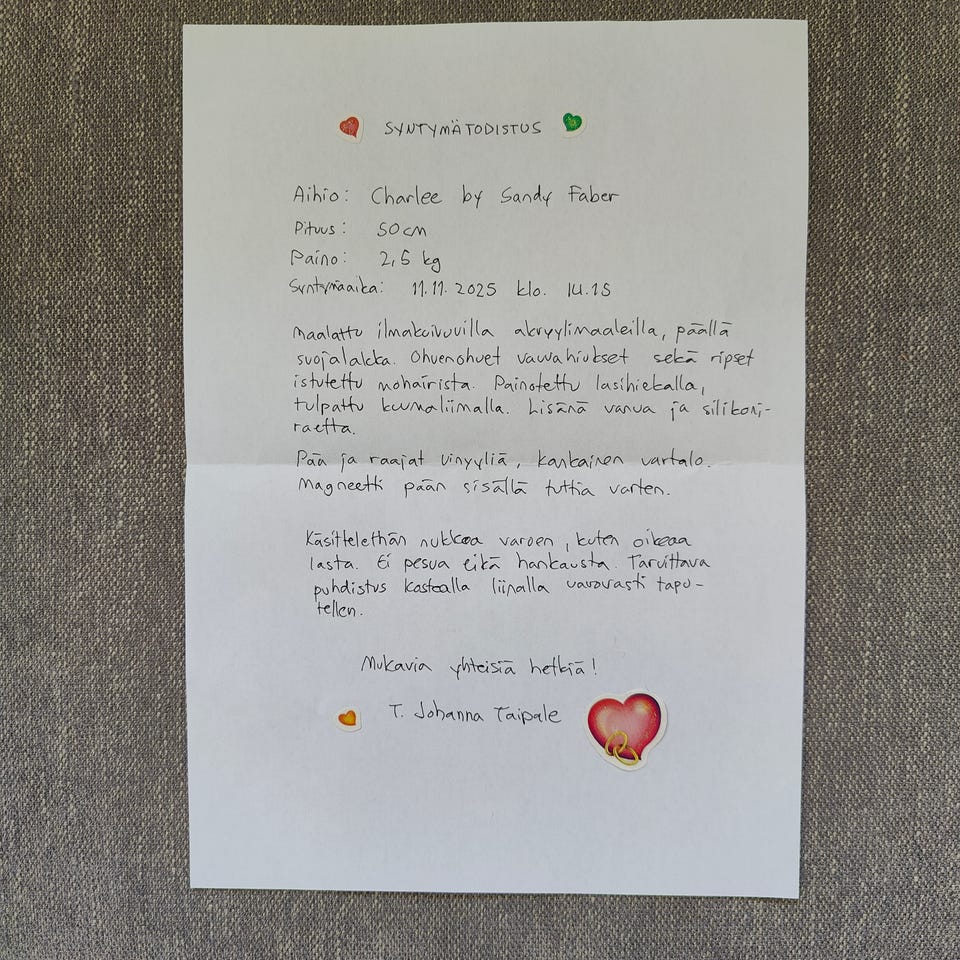 SYNTYMÄTODISTUS
Aihio: Charlee by Sandy Faber
Pituus: 50cm
Paino: 2,5 kg
Syntymäaika: 11.11.2025 klo. 14.15
Maalattu ilmakuivuvilla akryylimaaleilla, päällä
suojalakka. Ohuenohuet vauvahiukset sekä ripset
istutettu mohairista. Painotettu lasihiekalla,
tulpattu kuumaliimalla. Lisänä vanua ja silikoni-
raetta.
Pää ja raajat vinyyliä, kankainen vartalo.
Magneetti pään sisällä tuttia varten.
Käsittelethän nukkea varoen, kuten oikeaa
lasta. Ei pesua eikä hankausta. Tarvittava
puhdistus kostealla liinalla varovasti tapu-
tellen.
Mukavia yhteisiä hetkiä!
T. Johanna Taipale